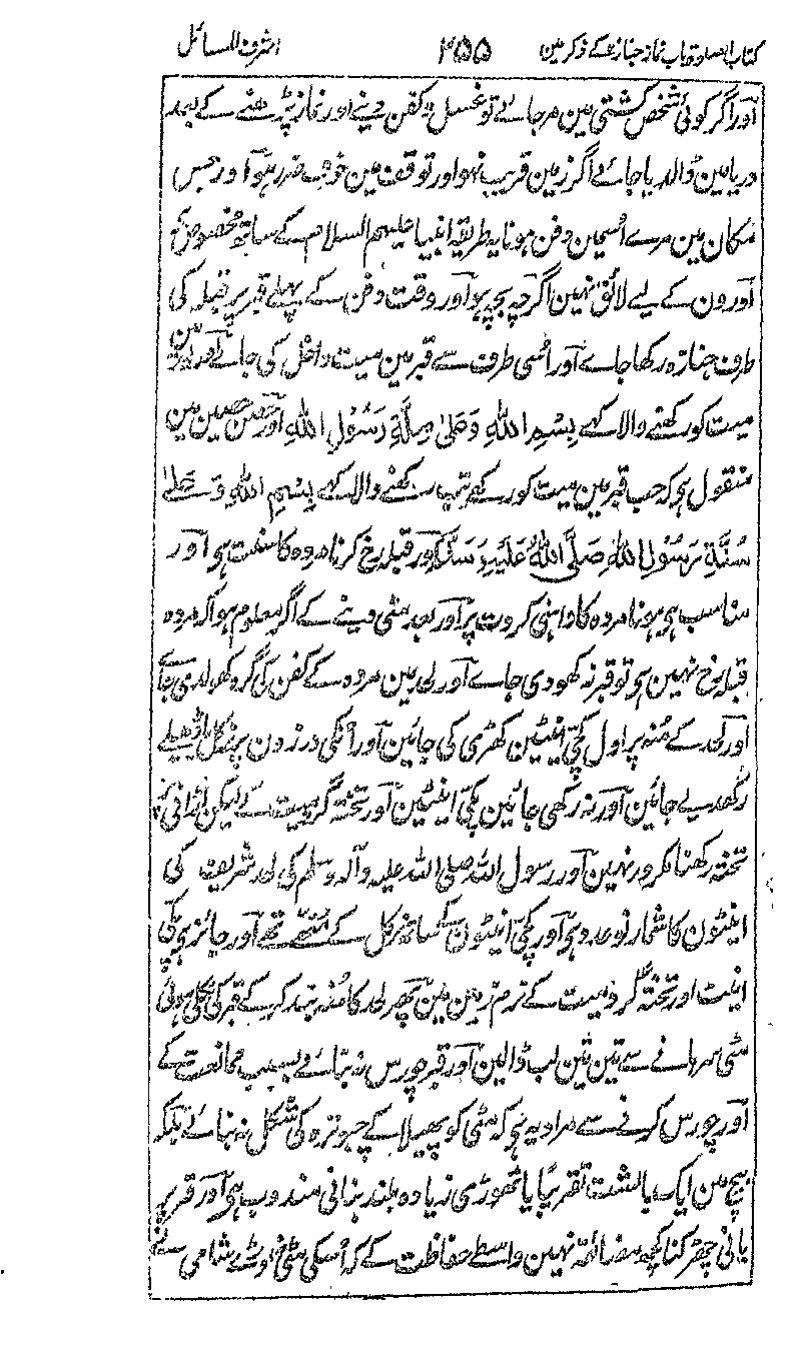 کتاب الصلوۃ باب نماز جنازہ کے ذکر مین ۲۵۵ اشرف المسائل
اور اگر کوئی شخص کشتی مین مر جائے تو غسل و کفن دینے اور نماز پڑھنے کے بعد
دریا مین ڈالدیا جائے اگر زمین قریب نہو اور توقف مین خوف ضرر ہو اور جس
مکان مین مرے اسمین دفن ہونا یہ طریقہ انبیا علیہم السلام کے ساتھ مخصوص ہی
اورون کے لیے لائق نہین اگرچہ بچہ ہو اور وقت دفن کے پہلے قبر پر قبلہ کی
طرف جنازہ رکھا جاے اور اسی طرف سے قبر مین میت داخل کی جائے اور قبر مین
میت کو رکھنے والا کہے بِسْمِ اللّٰہِ وَعَلٰی مِلَّۃِ رَسُوْلِ اللّٰہِ اور حصن حصین مین
منقول ہی کہ جب قبر مین میت کو رکھے تب رکھنے والا کہے بِسْمِ اللّٰہِ وَعَلٰی
سُنَّۃِ رَسُوْلِ اللّٰہِ صَلَّی اللّٰہُ عَلَیْہِ وَسَلَّمَ اور قبلہ رخ کرنا مردہ کا سنت ہی اور
مناسب ہی ہونا مردہ کا داہنی کروٹ پر اور بعد مٹی دینے کے اگر معلوم ہو کہ مردہ
قبلہ رخ نہین ہی تو قبر نہ کھودی جاے اور لحد مین مردہ کے کفن کی گرہ کھولدی جائے
اور لحد کے منہ پر اول کچی اینٹین کھڑی کی جائین اور انکی درزون پر نرکل یا ڈھیلے
رکھدیے جائین اور نہ رکھی جائین پکی اینٹین اور تختہ گرد میت کے لیکن
تختہ رکھنا مکروہ نہین اور رسول اللہ صلی اللہ علیہ وآلہ وسلم کی لحد شریف کی
اینٹون کا شمار نو عدد ہی اور کچی اینٹون کے ساتھ نرکل کے مٹھے تھے اور جائز ہی پکی
اینٹ اور تختہ گرد میت کے نرم زمین مین پھر لحد کا منہ بند کر کے قبر کی نکلی ہوئی
مٹی سرہانے سے تین تین لپ ڈالین اور قبر چورس نہ بنائے بسبب ممانعت کے
اور چورس کرنے سے مراد یہ ہی کہ مٹی کو پھیلا کے چبوترہ کی شکل نہ بنائے بلکہ
بیچ مین ایک بالشت تقریبًا یا تھوڑی زیادہ بلند بنانی مندوب ہی اور قبر پر
پانی چھڑکنا کچھ مضائقہ نہین واسطے حفاظت کے کہ اسکی مٹی نہ اوڑے شامی نے